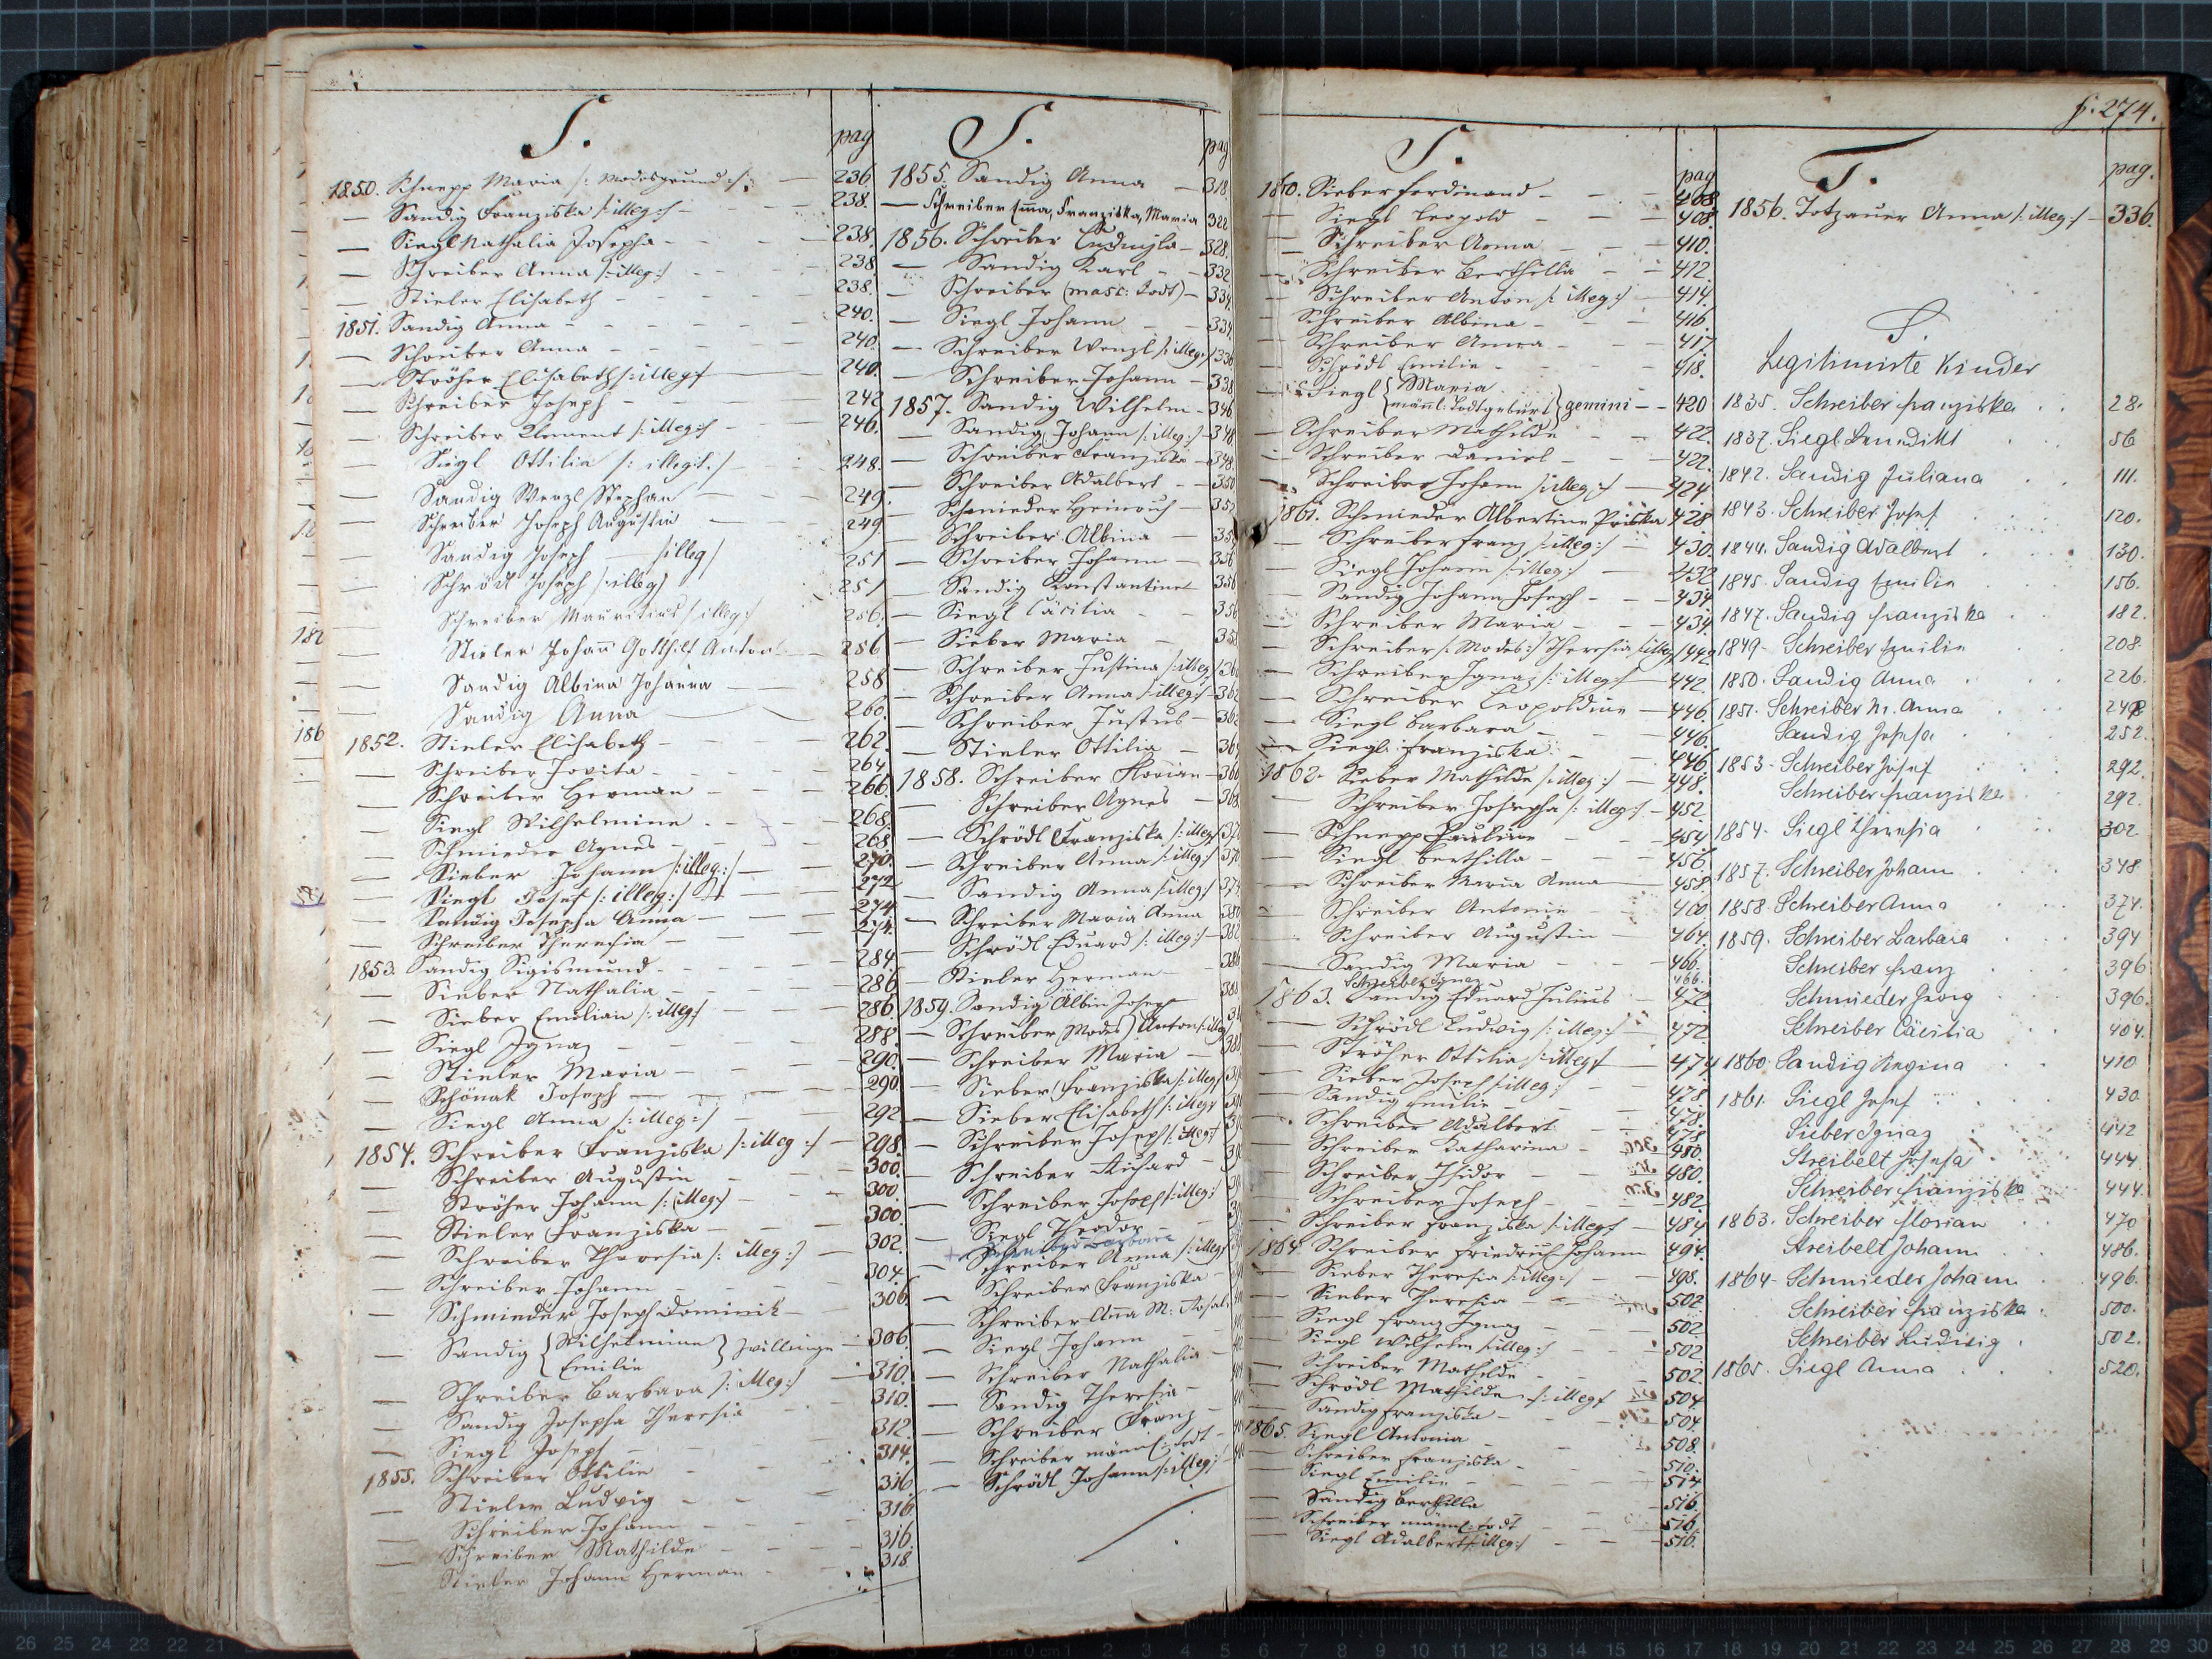 p. 274.
S.
pag
1850. Schnepp Maria /: Modesgrund :/ — 236.
— Sandig Franziska /: illeg :/ — 238.
— Siegl Nathalia Josepha — 238.
— Schreiber Anna /: illeg :/ — 238.
— Stieler Elisabeth — 238.
1851. Sandig Anna — 240.
— Schreiber Anna — 240.
— Ströher Elisabeth /: illeg :/ — 240.
— Schreiber Joseph — 242
— Schreiber Clement /: illeg :/ — 246.
— Siegl Ottilia /: illegit. / 248.
— Sandig Wenzl Stephan — 249.
— Schreiber Joseph Augustin — 249
— Sandig Joseph — /illeg/ 251
— Schrödl Joseph /: illeg/ 251
— Schreiber Mauritius /: illeg :/ 256.
— Stieler Johann Gotthilf Anton — 256
— Sandig Albina Johanna — 258
— Sandig Anna — 260.
1852. Stieler Elisabeth — 262.
— Schreiber Jovita — 264
— Schreiber Herman — 266.
— Siegl Wilhelmine — 268.
— Schmieder Agnes — 268
— Sieber Johann /: illeg.:/ — 270.
— Siegl Josef /: illeg.:/ — 272
— Sandig Josepha Anna — 274
— Schreiber Theresia — 274.
1853. Sandig Sigismund — 284.
— Sieber Nathalia — 286.
— Sieber Emilian /: illeg :/ — 286.
— Siegl Ignaz — 288.
— Stieler Maria — 290.
— Schönak Joseph — 290.
— Siegl Anna /: illeg :/ — 292
1854. Schreiber Franziska /: illeg :/ — 298.
— Schreiber Augustin — 300.
— Ströher Johann /: illeg :/ — 300.
— Stieler Franziska — 300
— Schreiber Theresia /: illeg :/ — 302.
— Schreiber Johann — 304.
— Schmieder Joseph Dominik — 306.
— Sandig { Wilhelmine Emilie } Zwillinge — 306.
— Schreiber Barbara /: illeg :/ — 310.
— Sandig Josepha Theresia — 310.
— Siegl Joseph — 312.
1855. Schreiber Ottilie — 314.
— Stieler Ludwig — 316.
— Schreiber Johann — 316.
— Schreiber Mathilde — 316.
— Stieler Johann Herman — 318
S.
pag
1855. Sandig Anna — 318.
— Schreiber Emma, Franziska, Maria 322
1856. Schreiber Ludmila — 328.
— Sandig Karl — 332
— Schreiber (masc: Todt) — 334.
— Siegl Johann — 334.
— Schreiber Wenzl /: illeg :/ 336
— Schreiber Johann — 338
1857. Sandig Wilhelm — 346
— Sandig Johann /: illeg :/ — 348
— Schreiber Franziska — 348.
— Schreiber Adalbert — 350
— Schmieder Heinrich — 352
— Schreiber Albina — 35
— Schreiber Johann — 356
— Sandig Konstantine 356
— Siegl Cäcilia — 356
— Sieber Maria — 35
— Schreiber Justina /: illeg 36
— Schreiber Anna /: illeg :/ — 362
— Schreiber Justus — 362
— Stieler Ottilia — 36
1858. Schreiber Florian — 366
— Schreiber Agnes — 368
— Schrödl Franziska /: illeg 37
— Schreiber Anna /: illeg :/ 370
— Sandig Anna /: illeg :/ 374
— Schreiber Maria Anna 380
— Schrödl Eduard /: illeg :/ — 382
— Stieler Herman — 38
1859. Sandig Albin Joseph 38
— Schreiber (Modes) Anton /: illeg
— Schreiber Maria — 388
— Sieber Franziska /: illeg
— Sieber Elisabeth /: illeg
— Schreiber Joseph /: illeg :/
— Schreiber Richard — 39
— Schreiber Joseph /: illeg :/
— Siegl Theodor —
+ Schreiber Barbara
— Schreiber Anna /: illeg
— Schreiber Franziska —
— Schreiber Anna M: Rosal.
— Siegl Johann —
— Schreiber Nathalia —
— Sandig Theresia —
— Schreiber Franz —
— Schreiber männl: todt —
— Schrödl Johann /: illeg :/ —
S.
pag
1860. Sieber Ferdinand — 408.
— Siegl Leopold — 408.
— Schreiber Anna — 410.
— Schreiber Berthilla — 412
— Schreiber Anton /: illeg :/ — 414.
— Schreiber Albina — 416.
— Schreiber Anna — 417
— Schrödl Emilie — 418.
— Siegl { Maria männl: Todtgeburt } gemini — 420
— Schreiber Mathilde — 422.
— Schreiber Daniel — 422.
— Schreiber Johann /: illeg :/ — 424
1861. Schmieder Albertine Priska 428
— Schreiber Franz /: illeg :/ — 430.
— Siegl Johann /: illeg :/ — 432
— Sandig Johann Joseph — 434
— Schreiber Maria — 434.
— Schreiber /: Modes :/ Theresia /: illeg 442
— Schreiber Ignaz /: illeg :/ — 442.
— Schreiber Leopoldine — 446.
— Siegl Barbara — 446.
— Siegl Franziska — 446
1862. Sieber Mathilde /: illeg :/ — 448.
— Schreiber Josepha /: illeg :/ — 452.
— Schnepp Pauline — 454
— Siegl Berthilla — 456.
— Schreiber Maria Anna — 458.
— Schreiber Antonie — 460
— Schreiber Augustin — 464.
— Sandig Maria — 466.
Schreiber Ignaz 466.
1863. Sandig Eduard Julius — 472
— Schrödl Ludwig /: illeg :/ — 472
— Ströher Ottilia /: illeg :/ — 474
— Sieber Joseph /: illeg :/ — 478
— Sandig Emilie — 478.
— Schreiber Adalbert — 478
— Schreiber Katharina — 480.
— Schreiber Isidor — 480.
— Schreiber Joseph — 482
— Schreiber Franziska /: illeg :/ — 484
1864. Schreiber Friedrich Johann 494.
— Sieber Theresia /: illeg :/ — 498.
— Sieber Theresia — 502.
— Siegl Franz Ignaz — 502.
— Siegl Wilhelm /: illeg :/ — 502
— Schreiber Mathilde — 502.
— Schrödl Mathilde /: illeg :/ 504.
— Sandig Franziska — 504.
1865. Siegl Antonia — 508.
— Schreiber Franziska — 510.
— Siegl Emilie — 514
— Sandig Berthilla — 516.
— Schreiber männl: todt — 516.
— Siegl Adalbert /: illeg :/ — 516.
T.
pag.
1856. Totzauer Anna /: illeg :/ — 336.
S.
Legitimirte Kinder
1835. Schreiber Franziska 28.
1837. Siegl Benedikt 56
1842. Sandig Juliana 111.
1843. Schreiber Josef 120.
1844. Sandig Adalbert 130.
1845. Sandig Emilie 156.
1847. Sandig Franziska 182.
1849. Schreiber Emilie 208.
1850. Sandig Anna 226.
1851. Schreiber M. Anna 248
Sandig Josefa 252.
1853. Schreiber Josef 292.
Schreiber Franziska 292.
1854. Siegl Theresia 302.
1857. Schreiber Johann 348
1858. Schreiber Anna 374.
1859. Schreiber Barbara 394
Schreiber Franz 396
Schmieder Georg 396.
Schreiber Cäcilia 404.
1860. Sandig Regina 410
1861. Siegl Josef 430
Sieber Ignaz 442
Streibelt Josefa 444
Schreiber Franziska 444.
1863. Schreiber Florian 470
Streibelt Johann 486.
1864. Schmieder Johann 496.
Schreiber Franziska 500.
Schreiber Ludwig 502.
1865. Siegl Anna 520.